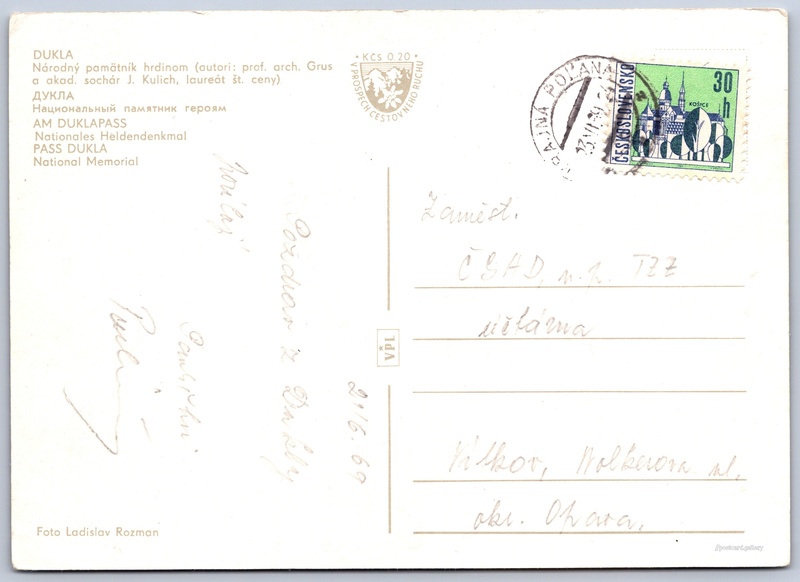 DUKLA
Národný pamätník hrdinom (autori: prof. arch. Grus
a akad. sochár J. Kulich, laureát št. ceny)
ДУКЛА
Национальный памятник героям
AM DUKLAPASS
Nationales Heldendenkmal
PASS DUKLA
National Memorial
KČS 0.20
V PROSPECH CESTOVNÉHO RUCHU
KRAJNÁ POĽANA
ČESKOSLOVENSKO
30
h
KOŠICE
Pozdrav z Dukly
posílají
2./6. 69
VPL
Zaměst.
ČSAD, n.p. TZZ
účtárna
Vítkov, Wolkerova ul.
okr. Opava.
Foto Ladislav Rozman